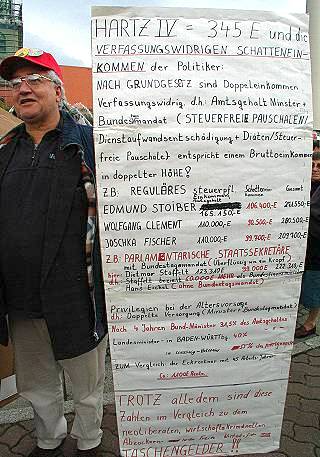 HARTZ IV = 345 E und die
VERFASSUNGSWIDRIGEN SCHATTENEIN-
KOMMEN der Politiker:
NACH GRUNDGESETZ sind Doppeleinkommen
Verfassungswidrig. d.h: Amtsgehalt Minster +
Bundesmandat (STEUERFREIE PAUSCHALEN)
Dienstaufwandsentschädigung + Diäten/Steuer-
freie Pauschale entspricht einem Bruttoeinkommen
in doppelter HÖHE!
Z.B: REGULÄRES steuerpfl. Schatten- Gesamt
Einkommen
EDMUND STOIBER 106.400,-E
165.150,-E
WOLFGANG CLEMENT 110.000,-E 90.500,-E 200.500-E
JOSCHKA FISCHER 110.000,-E 99.700,-E 209.700-E
Z.B: PARLAMENTARISCHE STAATSSEKRETÄRE
mit Bundestagsmandat (Überflüssig wie ein Kropf)
Dietmar Staffelt 123.310E 99.000E
d.h: Staffelt bezieht MEHR als Bundesfinanzminister
Hans Eichel (ohne Bundestagsmandat)
Privilegien bei der Altersvorsorge
d.h: Doppelte Versorgung (Minister + Bundestagsmandat)
Nach 4 Jahren Bund-Minister des Amtsgehaltes
Landesminister - in BADEN-WÜRTTbg 40%
ZUM Vergleich: der Eckrentner mit 45 Arbeits-Jahren
TROTZ alledem sind diese
Zahlen im Vergleich zu dem
neoliberalen, wirtschaftskriminellen
Abzockern
TASCHENGELDER !!